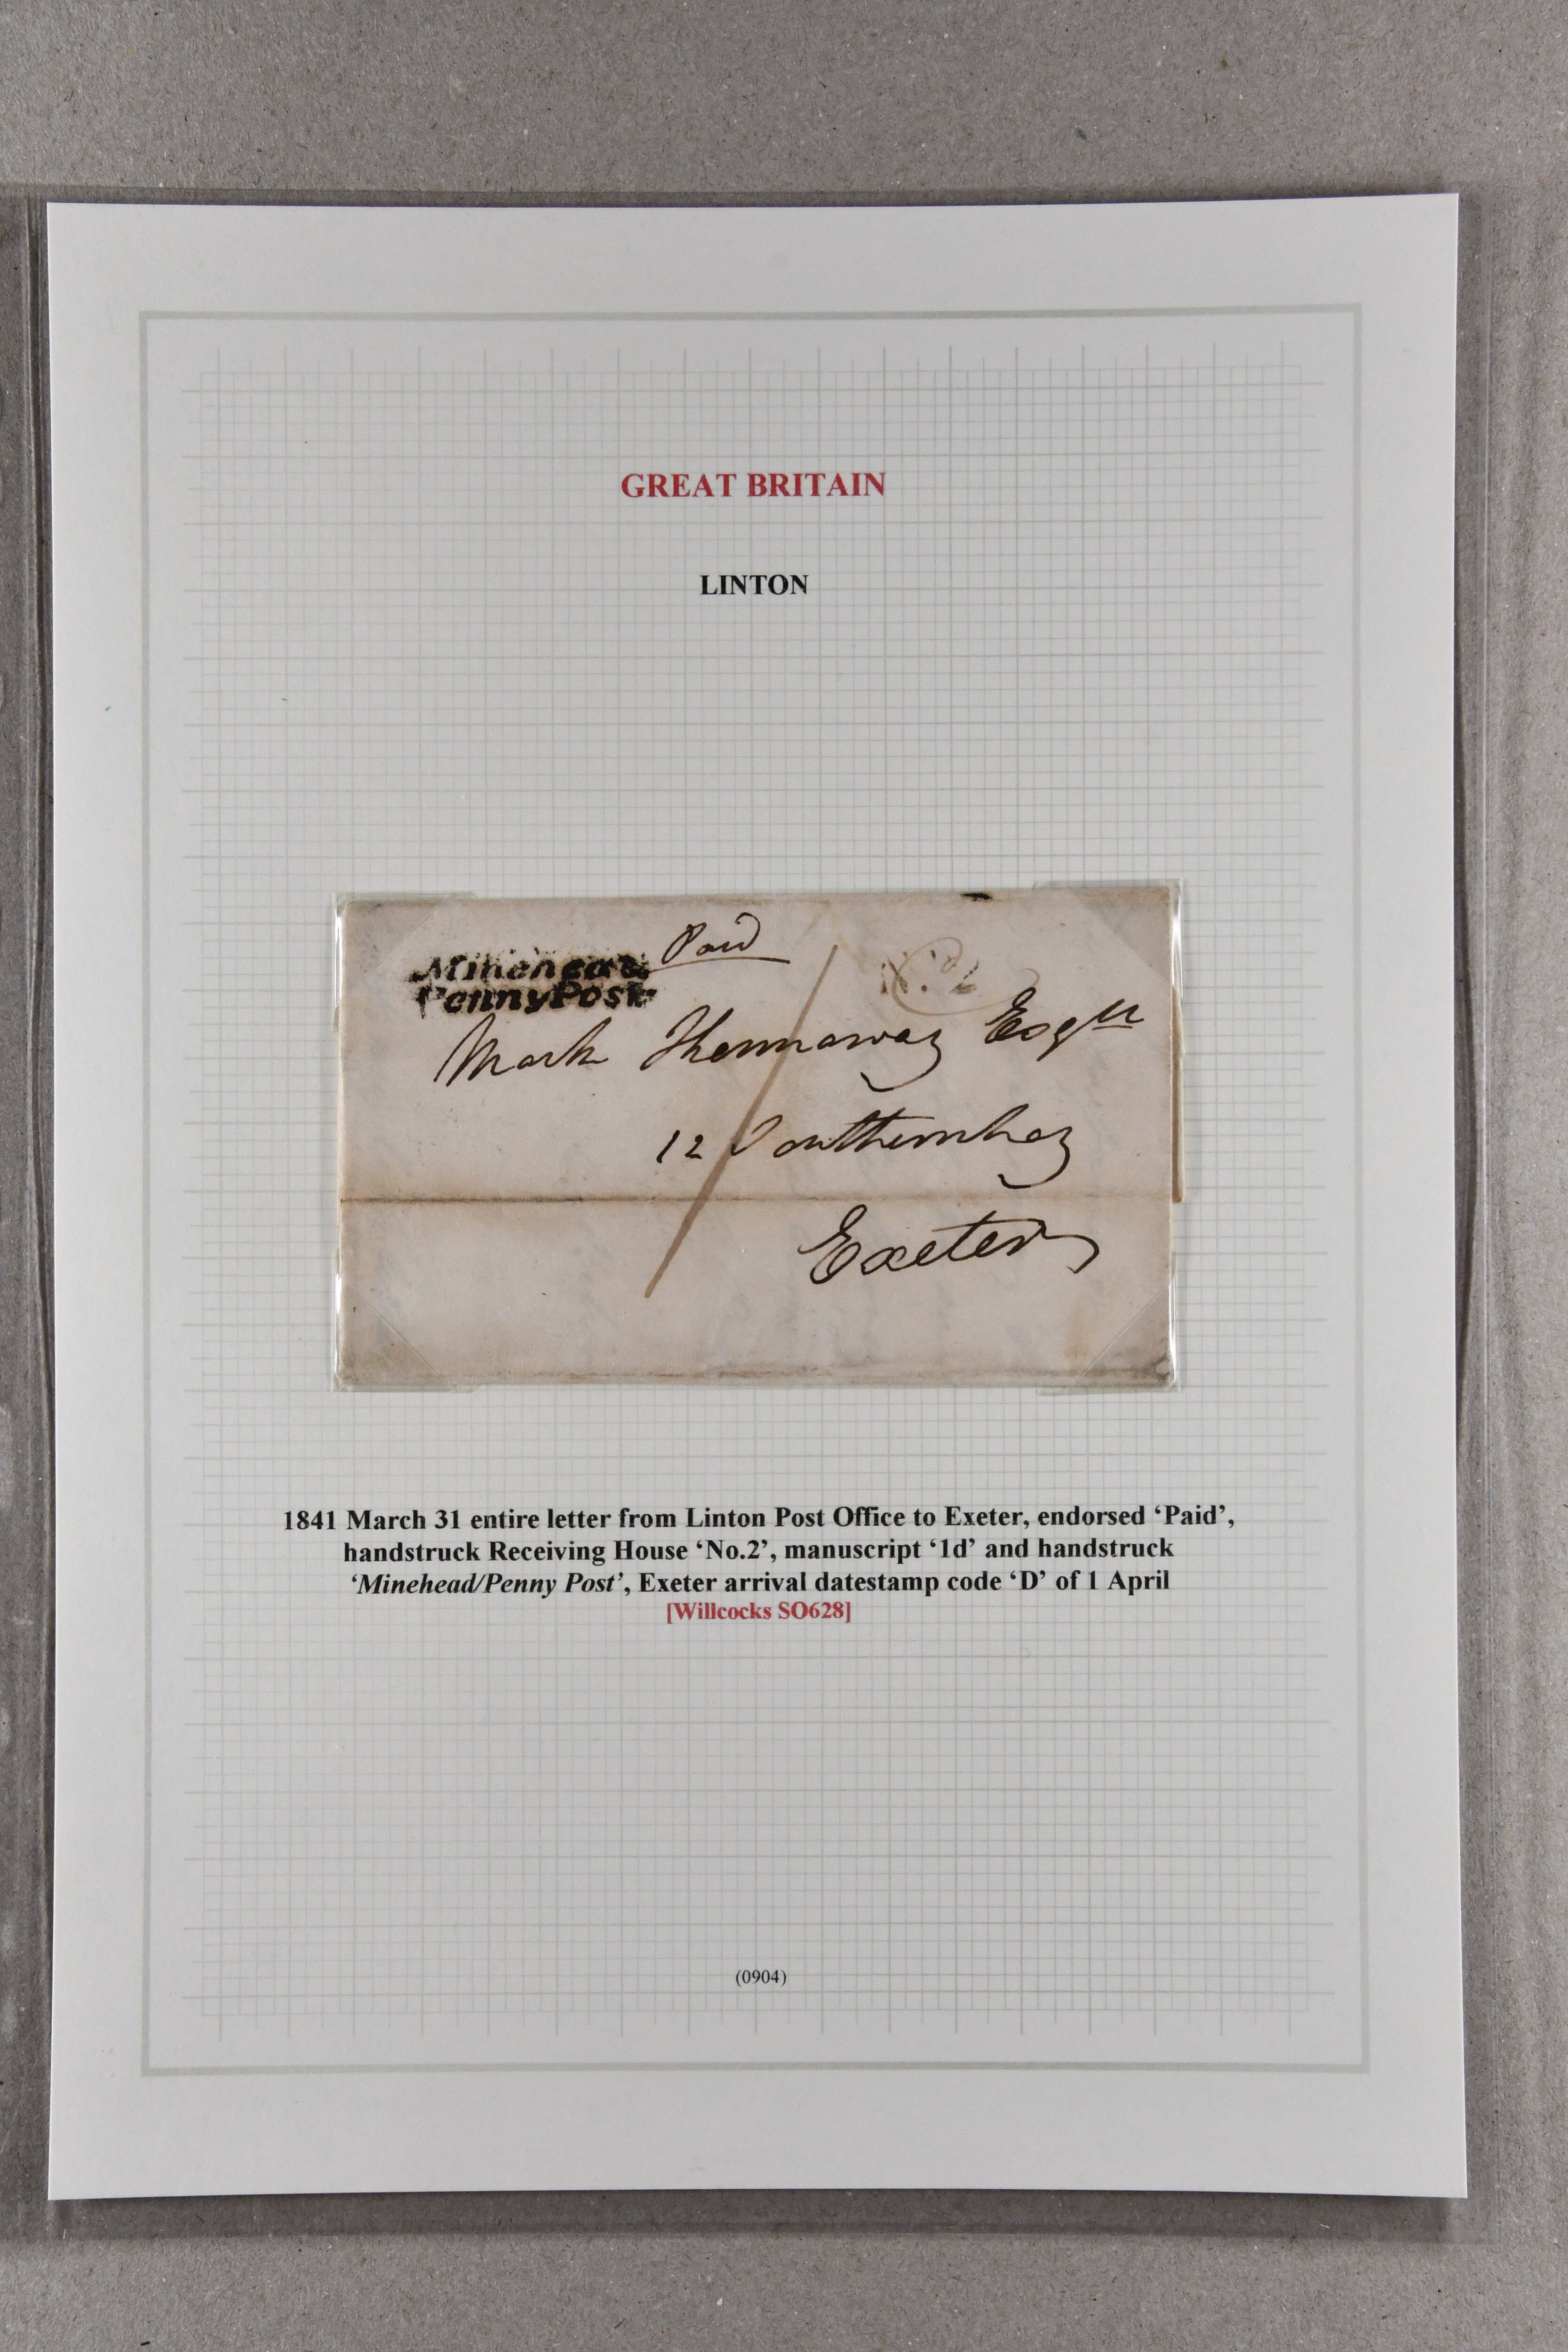 GREAT BRITAIN
LINTON
Paid
Minehead
Penny Post
No. 2
Mark Kennaway Esqre
12 Southernhay
Exeter
1841 March 31 entire letter from Linton Post Office to Exeter, endorsed ‘Paid’,
handstruck Receiving House ‘No.2’, manuscript ‘1d’ and handstruck
‘Minehead/Penny Post’, Exeter arrival datestamp code ‘D’ of 1 April
[Willcocks SO628]
(0904)